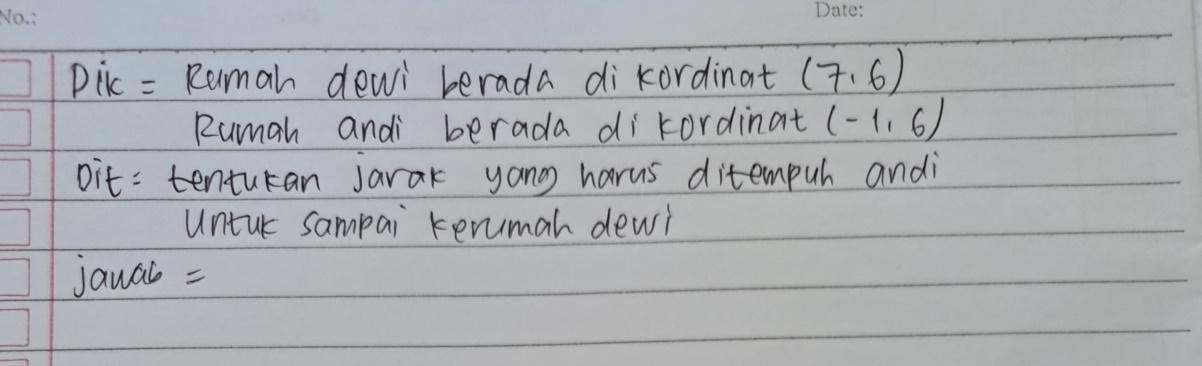 No.:
Date:
Dik = Rumah dewi berada di kordinat (7,6)
Rumah andi berada di kordinat (-1,6)
Dit = tentukan jarak yang harus ditempuh andi
Untuk sampai kerumah dewi
jawab =